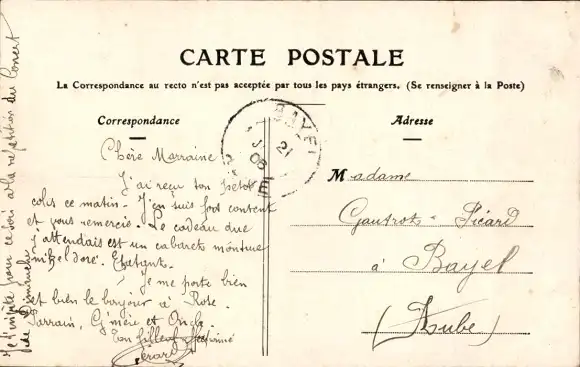 CARTE POSTALE
La Correspondance au recto n'est pas acceptée par tous les pays étrangers. (Se renseigner à la Poste)
Correspondance
Adresse
BAYEL
21
06
Chère Marraine
J'ai reçu ton
colis ce matin. J'en suis fort content
et vous remercie. Le cadeau que
attendais est un cabaret monture
nikel doré. Epatant.
Je me porte bien
et bien le bonjour à Rose
Parrain, G'mère et Oncle.
Ton filleul
Gérard
Je t'invite pour ce soir à la répétition du Concert
de Dimanche
Madame
Gautrot-Picard
à Bayel
(Aube)